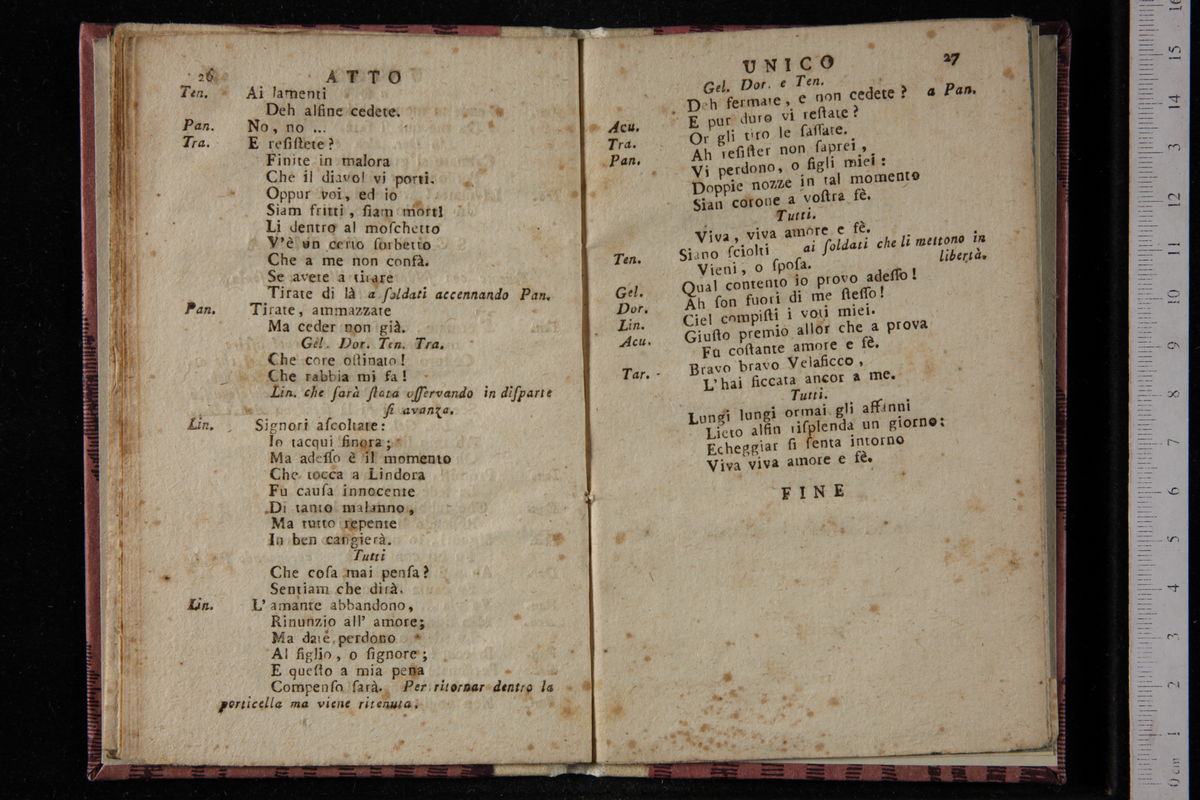 26 ATTO
Ten. Ai lamenti
Deh alfine cedete.
Pan. No, no ...
Tra. E reſiſtete?
Finite in malora
Che il diavol vi porti.
Oppur voi, ed io
Siam fritti, ſiam morti
Lì dentro al moſchetto
V'è un certo ſorbetto
Che a me non confà.
Se avete a tirare
Tirate di là a ſoldati accennando Pan.
Pan. Tirate, ammazzate
Ma ceder non già.
Gel. Dor. Ten. Tra.
Che core oſtinato!
Che rabbia mi fa!
Lin. che ſarà ſtata oſſervando in diſparte
ſi avanza.
Lin. Signori aſcoltate:
Io tacqui finora;
Ma adeſſo è il momento
Che tocca a Lindora
Fu cauſa innocente
Di tanto malanno,
Ma tutto repente
In ben cangierà.
Tutti
Che coſa mai penſa?
Sentiam che dirà.
Lin. L'amante abbandono,
Rinunzio all' amore;
Ma date perdono
Al figlio, o ſignore;
E queſto a mia pena
Compenſo ſarà. Per ritornar dentro la
porticella ma viene ritenuta.
UNICO 27
Gel. Dor. e Ten.
Deh fermate, e non cedete? a Pan.
E pur duro vi reſtate?
Acu. Or gli tiro le ſaſſate.
Tra. Ah reſiſter non ſaprei,
Pan. Vi perdono, o figli miei:
Doppie nozze in tal momento
Sian corone a voſtra fè.
Tutti.
Viva, viva amore e fè.
Ten. Siano ſciolti ai ſoldati che li mettono in
Vieni, o ſpoſa. libertà.
Gel. Qual contento io provo adeſſo!
Dor. Ah ſon fuori di me ſteſſo!
Lin. Ciel compiſti i voti miei.
Acu. Giuſto premio allor che a prova
Fu coſtante amore e fè.
Tar. Bravo bravo Velaficco,
L'hai ficcata ancor a me.
Tutti.
Lungi lungi ormai gli affanni
Lieto alfin riſplenda un giorno:
Echeggiar ſi ſenta intorno
Viva viva amore e fè.
FINE
0 cm 1 2 3 4 5 6 7 8 9 10 11 12 13 14 15 16